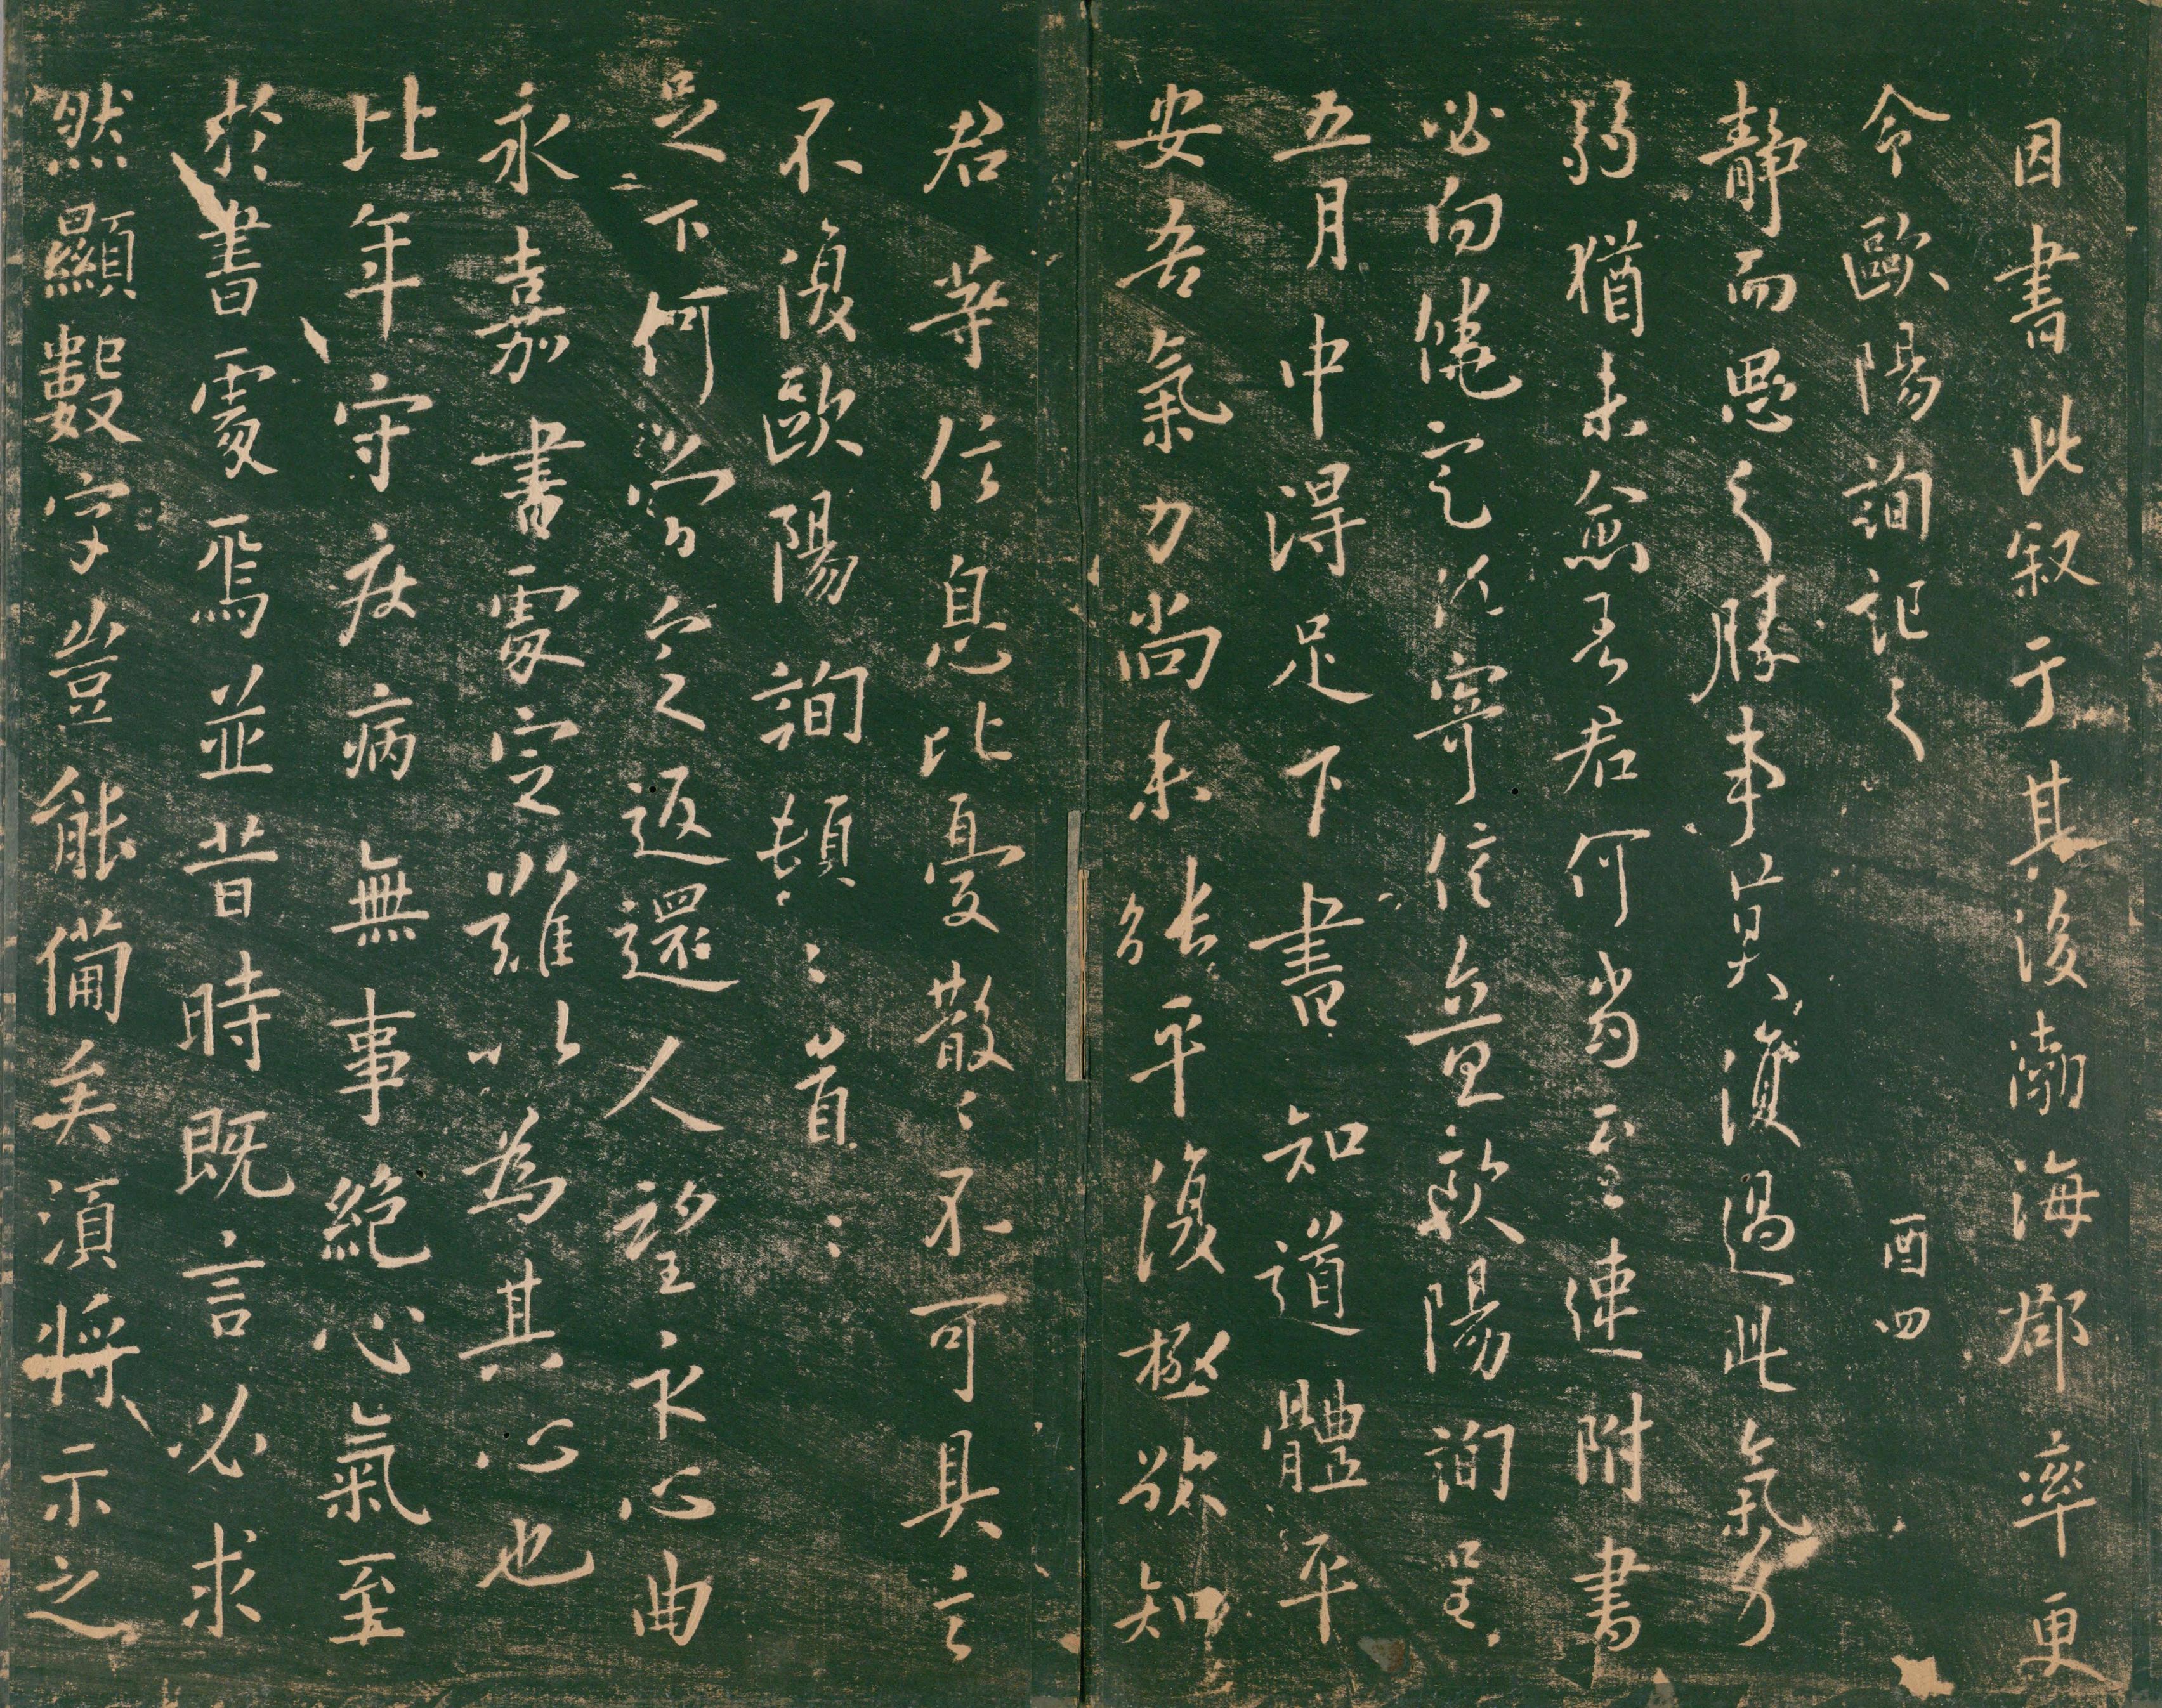 因書此叙于其後渤海郡率更
令歐陽詢記之
酉四
静而思之勝事莫復過此氣力
弱猶未愈吾君何當至速附書
必向饒定次寄信立具歐陽詢呈
五月中得足下書知道體平
安吾氣力尚未能平復極欲知
君等信息比憂散〻不可具言
不復歐陽詢頓〻首〻
足〻下何當令返還人望永心曲
永嘉書處定難以為其心也
比年守疾病無事絶心氣至
於書處焉並昔時既言必求
然顯數字豈能備矣須將示之